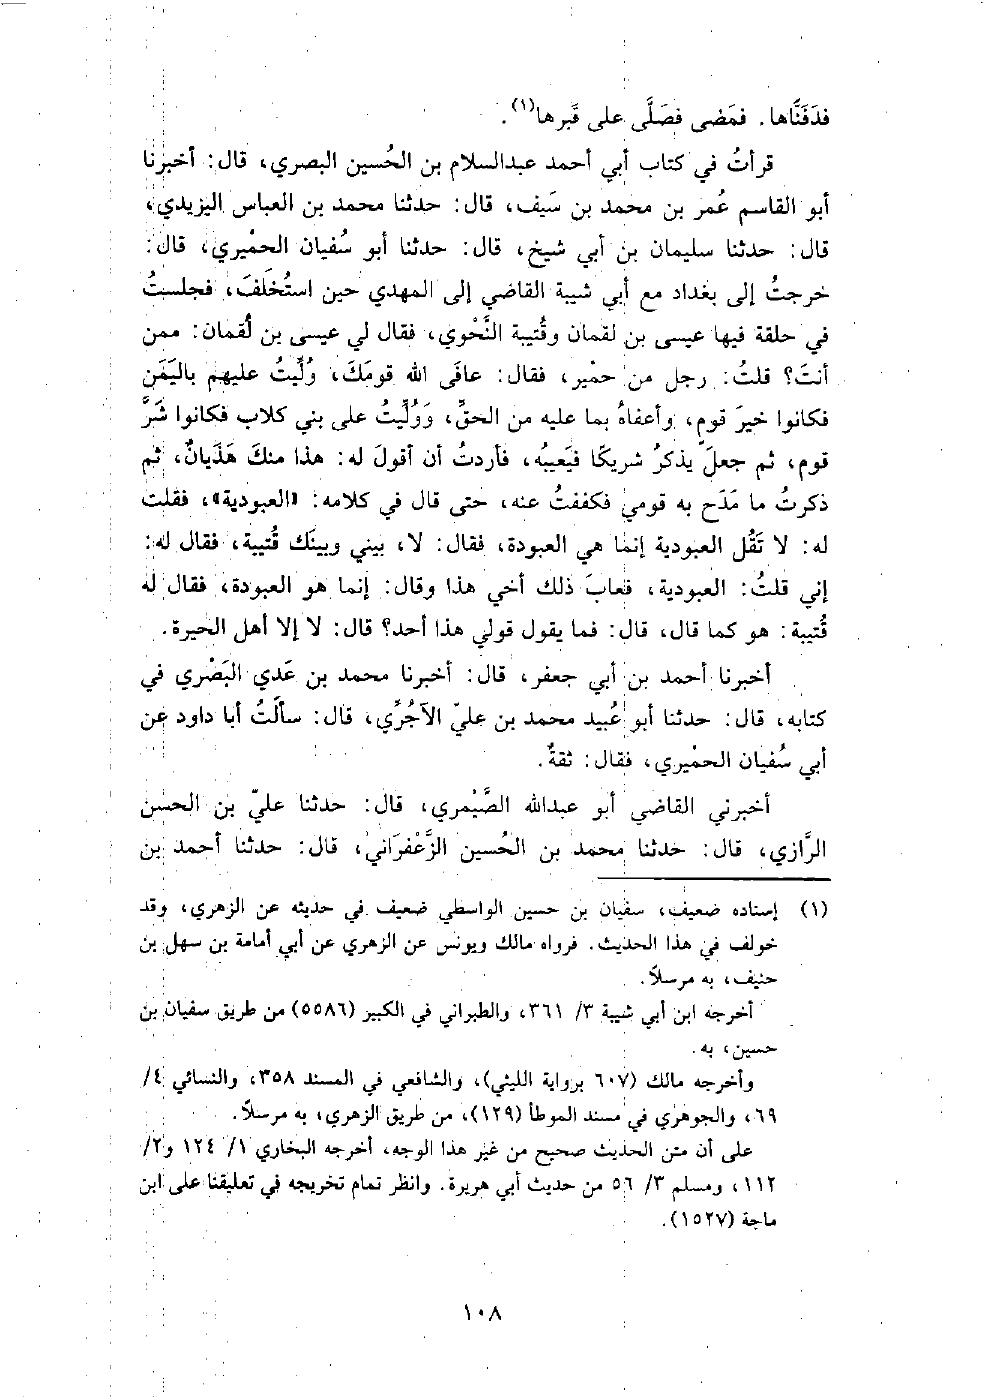 فدَفَنَّاها. فمَضى فصَلَّى على قَبرها(١).
قرأتُ في كتاب أبي أحمد عبدالسلام بن الحُسين البصري، قال: أخبرنا
أبو القاسم عُمر بن محمد بن سَيف، قال: حدثنا محمد بن العباس اليزيدي،
قال: حدثنا سليمان بن أبي شيخ، قال: حدثنا أبو سُفيان الحمْيري، قال:
خرجتُ إلى بغداد مع أبي شيبة القاضي إلى المهدي حين استُخلَفَ، فجلستُ
في حلقة فيها عيسى بن لقمان وقُتيبة النَّحْوي، فقال لي عيسى بن لُقمان: ممن
أنتَ؟ قلتُ: رجل من حمْير، فقال: عافَى الله قومَكَ، وُلِّيتُ عليهم باليَمَن
فكانوا خيرَ قوم، وأعفاهُ بما عليه من الحقِّ، وَوُلِّيتُ على بني كلاب فكانوا شَرَّ
قوم، ثم جعلَ يذكرُ شريكًا فيَعيبُه، فأردتُ أن أقولَ له: هذا منكَ هَذَيانٌ، ثم
ذكرتُ ما مَدَح به قومي فكففتُ عنه، حتى قال في كلامه: «العبودية»، فقلت
له: لا تَقُل العبودية إنما هي العبودة، فقال: لا، بيني وبينَك قُتيبة، فقال له:
إني قلتُ: العبودية، فعابَ ذلك أخي هذا وقال: إنما هو العبودة، فقال له
قُتيبة: هو كما قال، قال: فما يقول قولي هذا أحد؟ قال: لا إلا أهل الحيرة.
أخبرنا أحمد بن أبي جعفر، قال: أخبرنا محمد بن عَدي البَصْري في
كتابه، قال: حدثنا أبو عُبيد محمد بن عليّ الآجُرِّي، قال: سألتُ أبا داود عن
أبي سُفيان الحمْيري، فقال: ثقةٌ.
أخبرني القاضي أبو عبدالله الصَّيْمري، قال: حدثنا عليّ بن الحسن
الرَّازي، قال: حدثنا محمد بن الحُسين الزَّعْفَراني، قال: حدثنا أحمد بن
(١) إسناده ضعيف، سفيان بن حسين الواسطي ضعيف في حديثه عن الزهري، وقد
خولف في هذا الحديث. فرواه مالك ويونس عن الزهري عن أبي أمامة بن سهل بن
حنيف، به مرسلاً.
أخرجه ابن أبي شيبة ٣/ ٣٦١، والطبراني في الكبير (٥٥٨٦) من طريق سفيان بن
حسين، به.
وأخرجه مالك (٦٠٧ برواية الليثي)، والشافعي في المسند ٣٥٨، والنسائي ٤/
٦٩، والجوهري في مسند الموطأ (١٢٩)، من طريق الزهري، به مرسلاً.
على أن متن الحديث صحيح من غير هذا الوجه، أخرجه البخاري ١/ ١٢٤ و٢/
١١٢، ومسلم ٣/ ٥٦ من حديث أبي هريرة. وانظر تمام تخريجه في تعليقنا على ابن
ماجة (١٥٢٧).
١٠٨